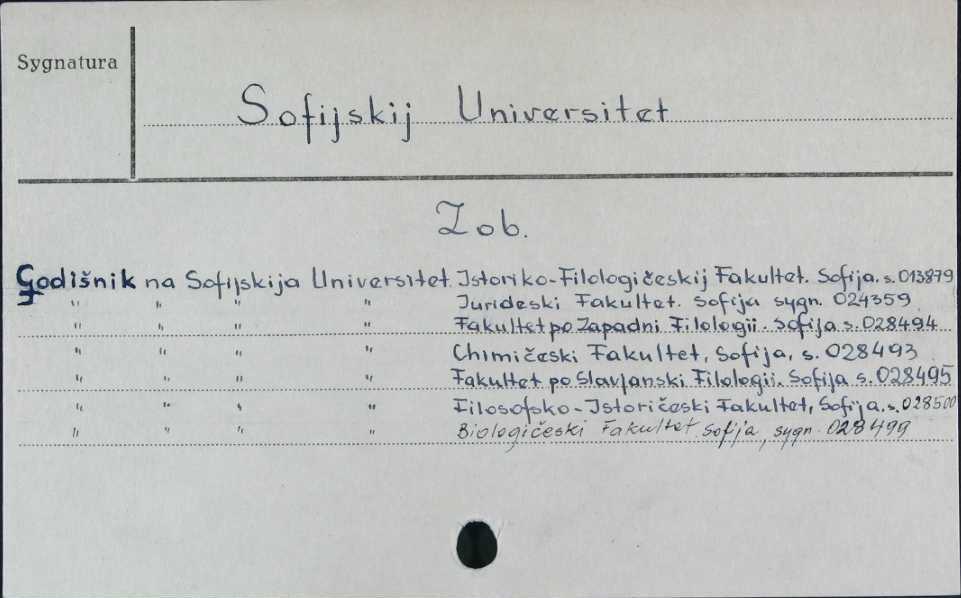 Sygnatura
Sofijskij Universitet
Zob.
Godišnik na Sofijskija Universitet. Istoriko-Filologičeskij Fakultet. Sofija. s. 013879
" " " " Jurideski Fakultet. Sofija sygn. 024359
" " " " Fakultet po Zapadni Filologii. Sofija s. 028494
" " " " Chimičeski Fakultet, Sofija, s. 028493
" " " " Fakultet po Slavjanski Filologii. Sofija s. 028495
" " " " Filosofsko-Istoričeski Fakultet, Sofija. s. 028500
" " " " Biologičeski Fakultet Sofija, sygn. 028499